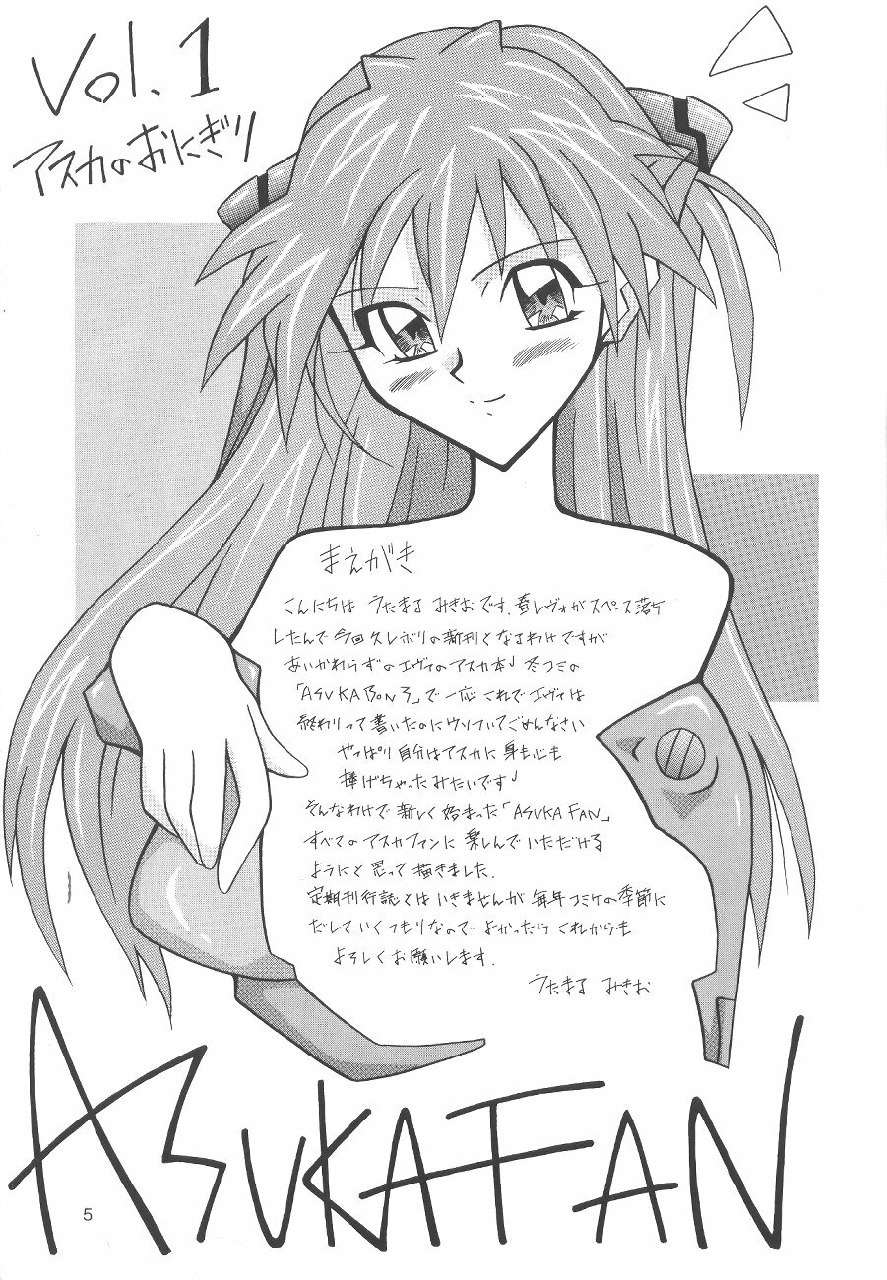 Vol.1
アスカのおにぎり
まえがき
こんにちは うたまる みきおです。春レヴォがスペース落ケ
したんで 今回久しぶりの新刊となるわけですが
あいかわらずのエヴァのアスカ本♩ 冬コミの
「ASUKA BON 3」で 一応 これでエヴァは
終わりって書いたのにウソついてごめんなさい
やっぱり自分はアスカに身も心も
捧げちゃったみたいです♩
そんなわけで新しく始まった「ASUKA FAN」
すべてのアスカファンに楽しんでいただける
ようにと思って描きました.
定期刊行誌とはいきませんが 毎年コミケの季節に
だしていくつもりなので よかったら これからも
よろしくお願いします.
うたまる みきお
ASUKA FAN
5